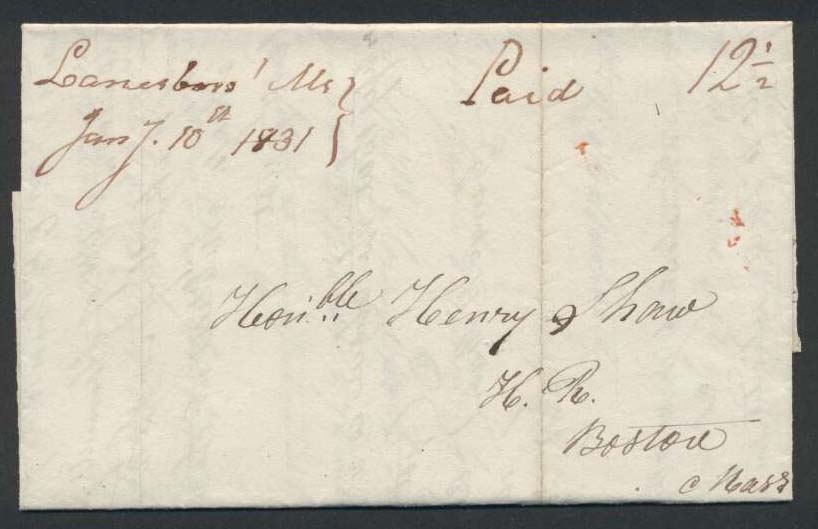 Lanesboro' Ms }
Jany. 10th 1831 }
Paid
12 1/2
Hon.ble Henry Shaw
H. R.
Boston
Mass